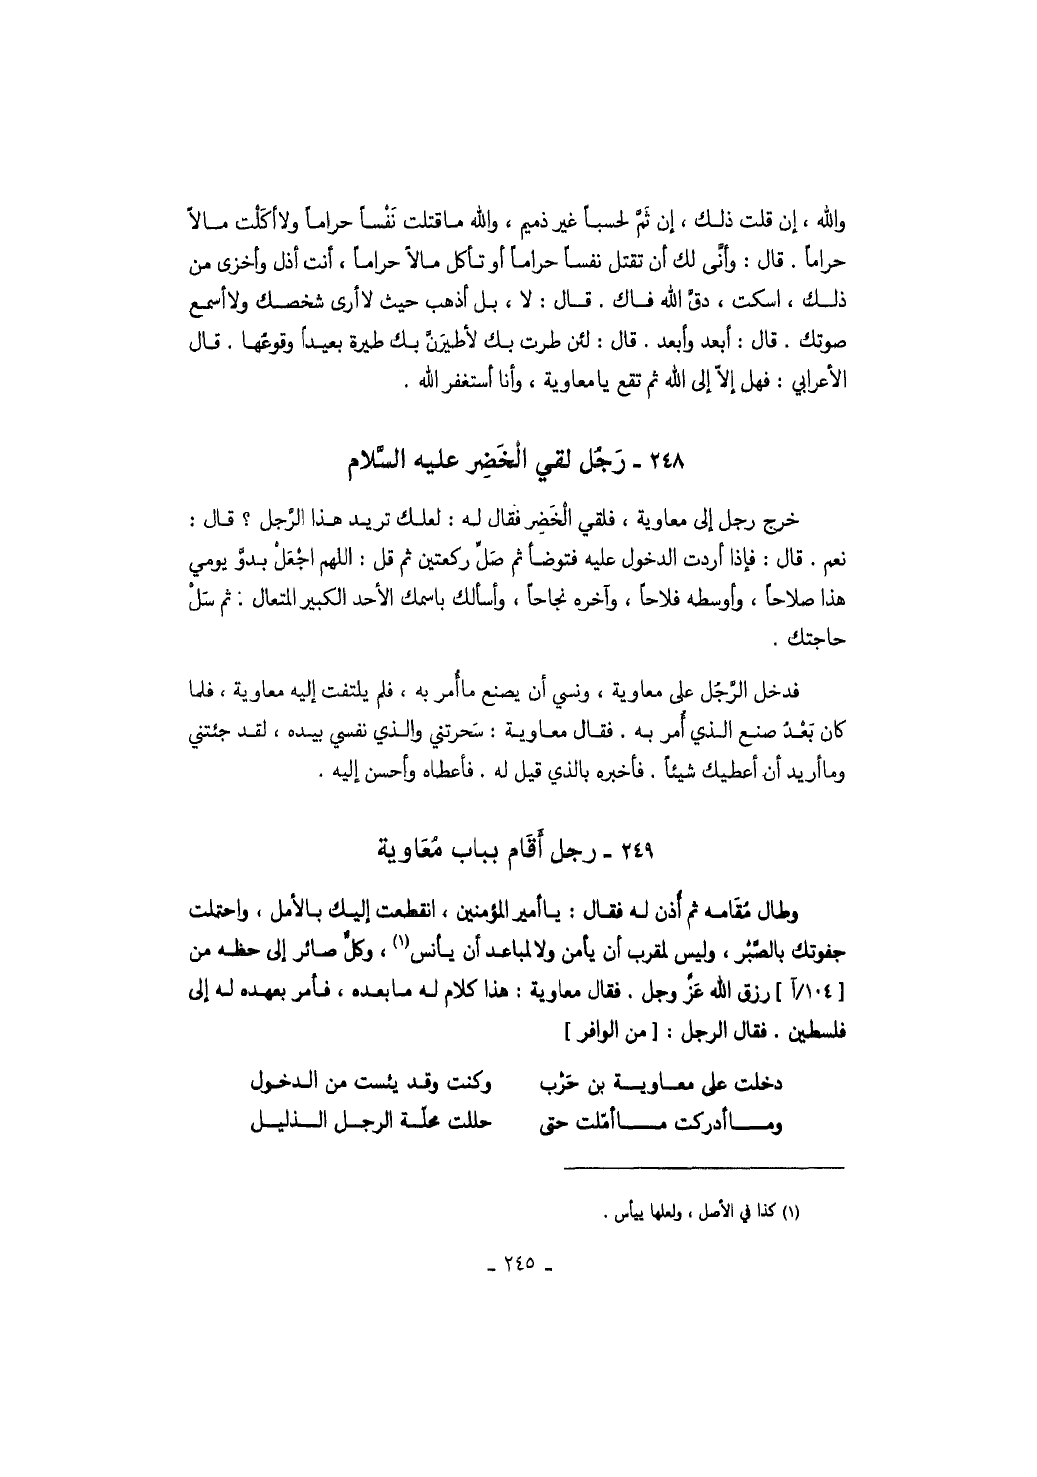 والله ، إن قلت ذلك ، إن ثَمَّ لحسباً غير ذميم ، والله ماقتلت نَفْساً حراماً ولاأكَلْت مالاً
حراماً . قال : وأنَّى لك أن تقتل نفساً حراماً أو تأكل مالاً حراماً ، أنت أذل وأخزى من
ذلك ، اسكت ، دقَّ الله فاك . قال : لا ، بل أذهب حيث لاأرى شخصك ولاأسمع
صوتك . قال : أبعد وأبعد . قال : لئن طرت بك لأطيرَنَّ بك طيرة بعيداً وقوعُها . قال
الأعرابي : فهل إلاّ إلى الله ثم تقع يامعاوية ، وأنا أستغفر الله .
٢٤٨ ـ رَجُل لقي الْخَضِر عليه السَّلام
خرج رجل إلى معاوية ، فلقي الْخَضِر فقال له : لعلك تريد هذا الرَّجل ؟ قال :
نعم . قال : فإذا أردت الدخول عليه فتوضأ ثم صَلِّ ركعتين ثم قل : اللهم اجْعَلْ بدوَّ يومي
هذا صلاحاً ، وأوسطه فلاحاً ، وآخره نجاحاً ، وأسألك باسمك الأحد الكبير المتعال : ثم سَلْ
حاجتك .
فدخل الرَّجُل على معاوية ، ونسي أن يصنع ماأُمر به ، فلم يلتفت إليه معاوية ، فلما
كان بَعْدُ صنع الذي أُمر به . فقال معاوية : سَحرتني والذي نفسي بيده ، لقد جئتني
وماأريد أن أعطيك شيئاً . فأخبره بالذي قيل له . فأعطاه وأحسن إليه .
٢٤٩ ـ رجل أَقَام بباب مُعَاوية
وطال مُقَامه ثم أُذن له فقال : ياأمير المؤمنين ، انقطعت إليك بالأمل ، واحتملت
جفوتك بالصَّبْر ، وليس لمقرب أن يأمن ولالمباعد أن يأنس(١) ، وكلٌّ صائر إلى حظه من
[ ١٠٤/آ ] رزق الله عَزَّ وجل . فقال معاوية : هذا كلام له مابعده ، فأمر بعهده له إلى
فلسطين . فقال الرجل : [ من الوافر ]
دخلت على معاوية بن حَرْب وكنت وقد يئست من الدخول
وماأدركت ماأمّلت حتى حللت محلّة الرجل الذليل
(١) كذا في الأصل ، ولعلها ييأس .
ـ ٢٤٥ ـ